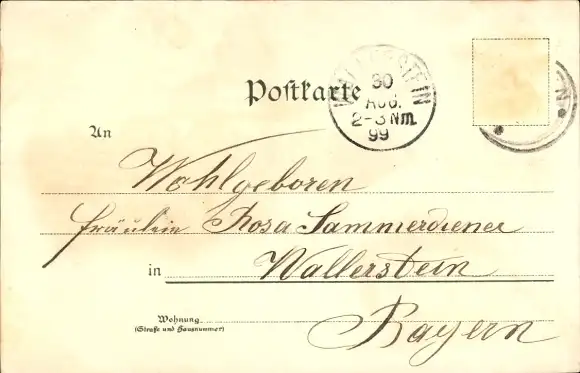 Postkarte
WALLERSTEIN
30
AUG.
2-3 Nm.
99
An
Wohlgeboren
Fräulein Rosa Sammerdiener
in Wallerstein
Wohnung
(Straße und Hausnummer)
Bayern